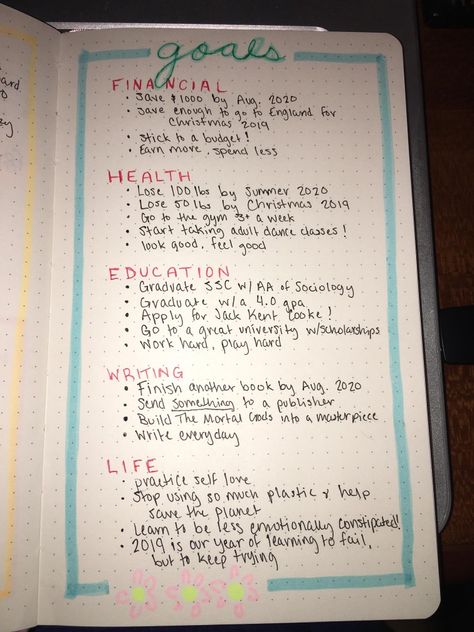 goals
FINANCIAL
• Save $1000 by Aug. 2020
• Save enough to go to England for
Christmas 2019
• Stick to a budget!
• Earn more, spend less
HEALTH
• Lose 100 lbs by Summer 2020
• Lose 50 lbs by Christmas 2019
• Go to the gym 3+ a week
• Start taking adult dance classes!
• look good, feel good
EDUCATION
• Graduate SSC w/ AA of Sociology
• Graduate w/ a 4.0 gpa
• Apply for Jack Kent Cooke!
• Go to a great university w/scholarships
• Work hard, play hard
WRITING
• Finish another book by Aug. 2020
• Send something to a publisher
• Build The Mortal Gods into a masterpiece
• Write everyday
LIFE
• practice self love
• Stop using so much plastic & help
save the planet
• Learn to be less emotionally constipated!
• 2019 is our year of learning to fail,
but to keep trying